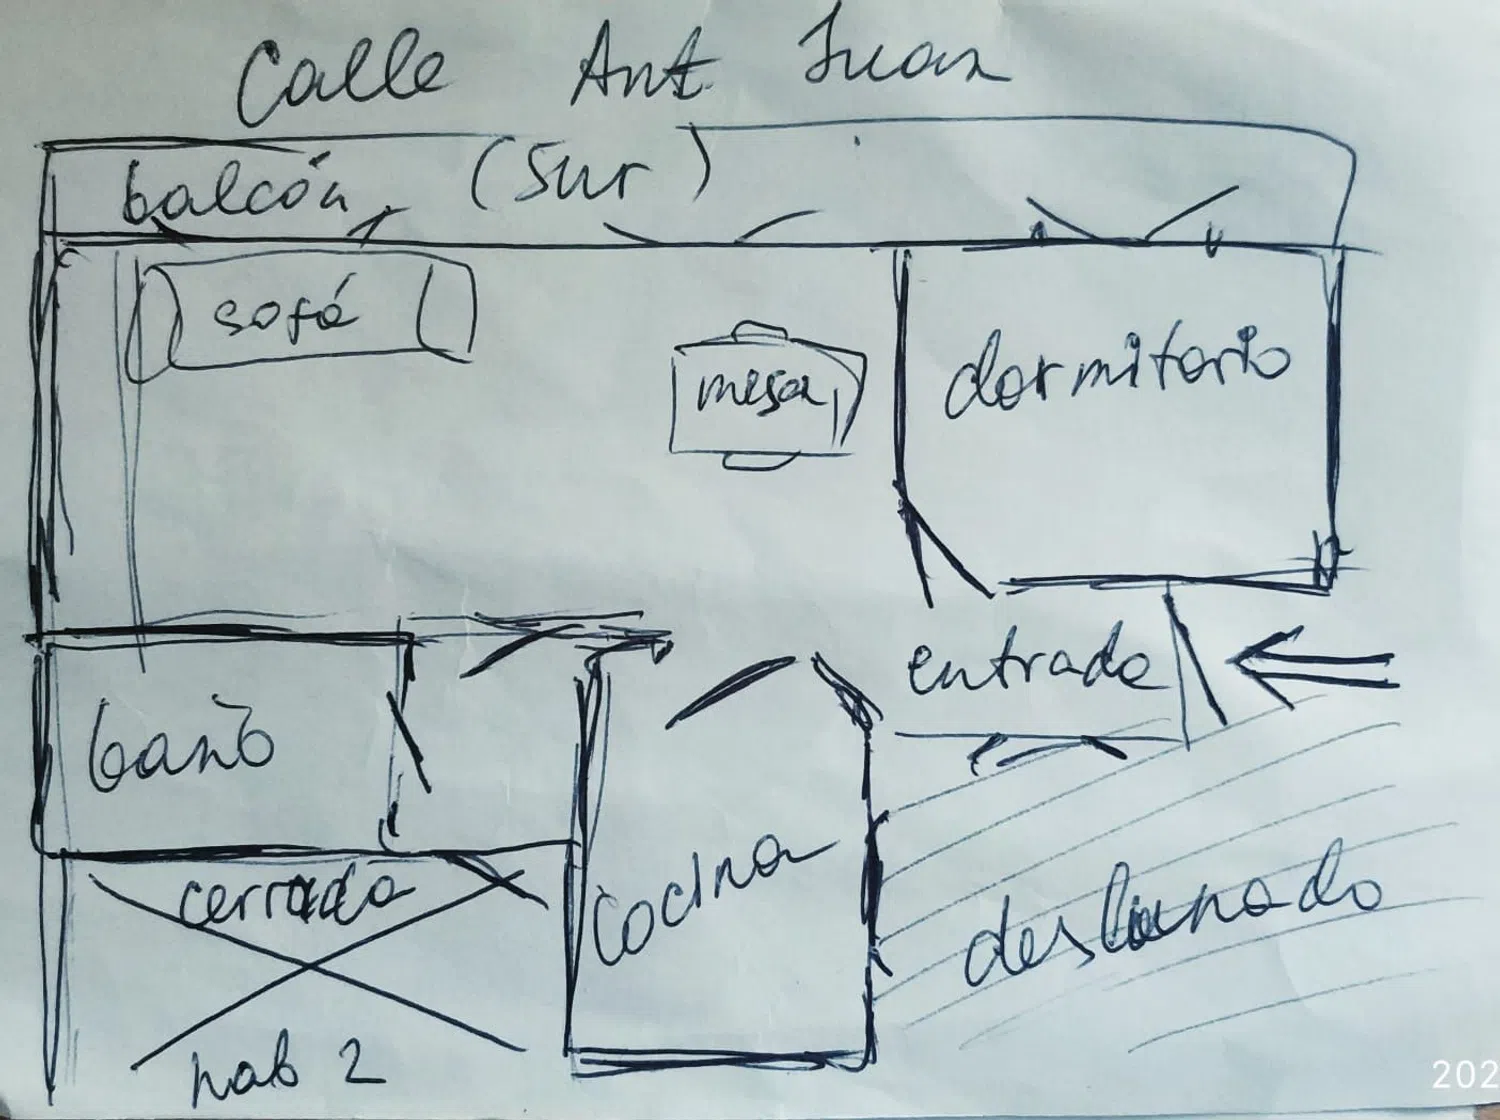 Calle Ant Juan
balcón (Sur)
sofá
mesa
dormitorio
entrada
baño
cocina
cerrado
deslunado
hab 2
202